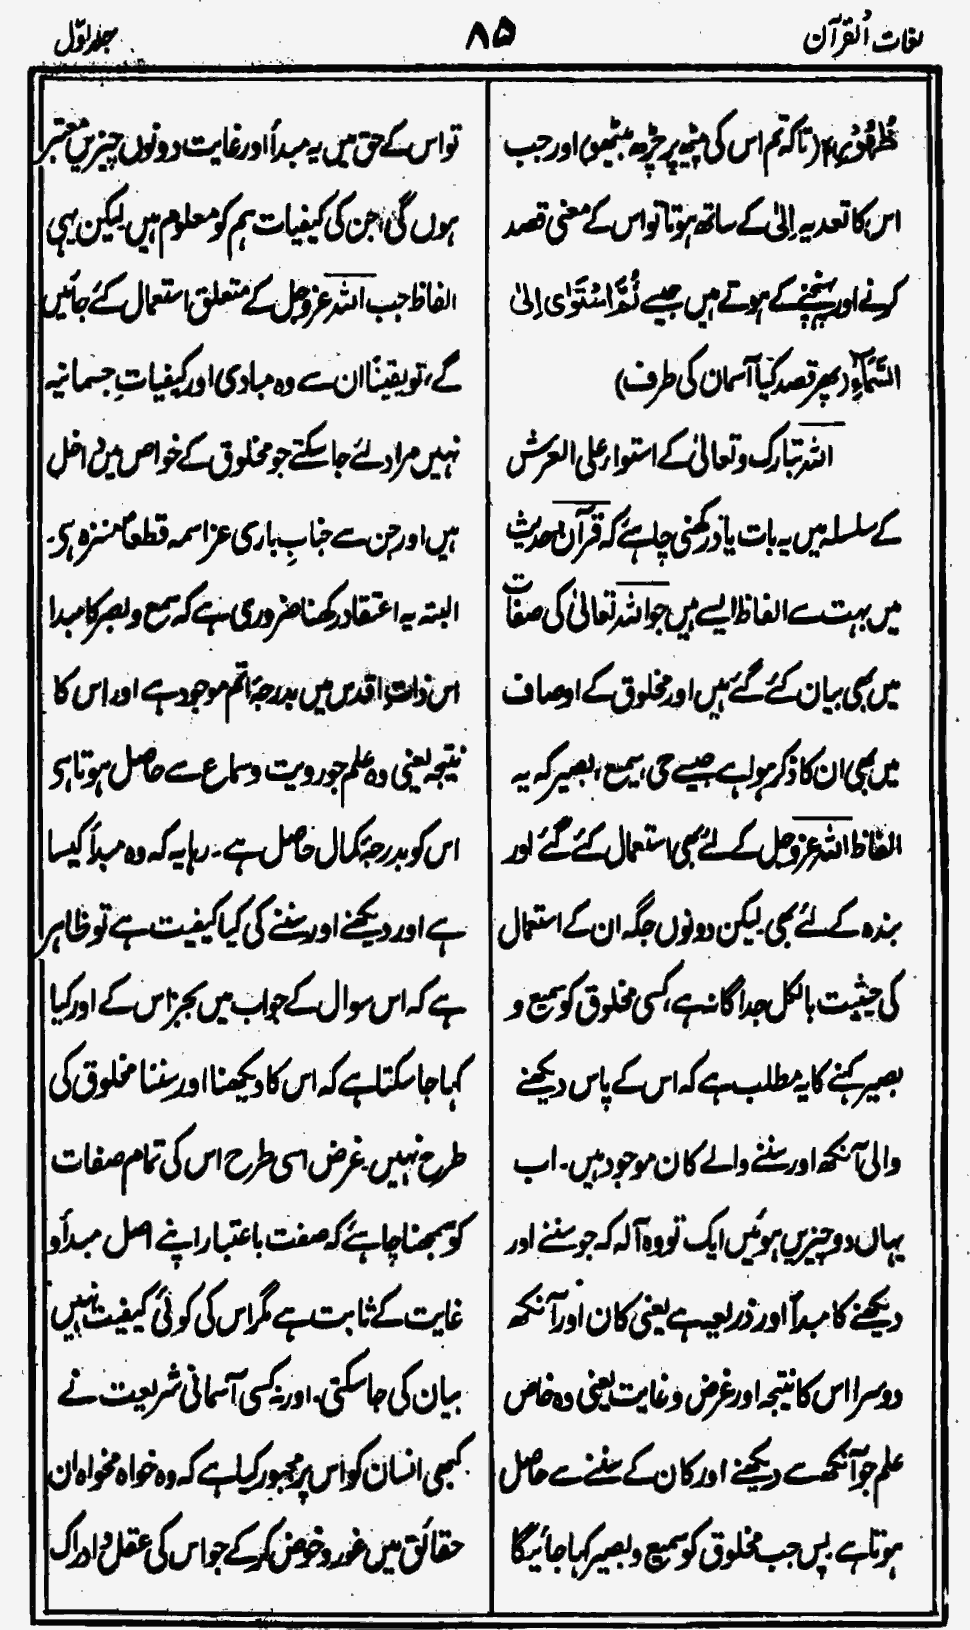 لغات القرآن
۸۵
جلد اوّل
ظُهُوْرِہٖ (تاکہ تم اس کی پیٹھ پر چڑھ بیٹھو) اور جب
اس کا تعدیہ اِلیٰ کے ساتھ ہوتا تو اس کے معنی قصد
کرنے اور پہنچنے کے ہوتے ہیں جیسے ثُمَّ اسْتَوٰى اِلىٰ
السَّمَآءِ (پھر قصد کیا آسمان کی طرف)
اللہ تبارک وتعالیٰ کے استواء علی العرش
کے سلسلہ میں یہ بات یاد رکھنی چاہئے کہ قرآن وحدیث
میں بہت سے الفاظ ایسے ہیں جو اللہ تعالیٰ کی صفات
میں بھی بیان کئے گئے ہیں اور مخلوق کے اوصاف
میں بھی ان کا ذکر ہوا ہے جیسے حی، سمیع، بصیر کہ یہ
الفاظ اللہ عزوجل کے لئے بھی استعمال کئے گئے اور
بندہ کے لئے بھی لیکن دونوں جگہ ان کے استعمال
کی حیثیت بالکل جداگانہ ہے، کسی مخلوق کو سمیع و
بصیر کہنے کا یہ مطلب ہے کہ اس کے پاس دیکھنے
والی آنکھ اور سننے والے کان موجود ہیں۔ اب
یہاں دو چیزیں ہوئیں ایک تو وہ آلہ کہ جو سننے اور
دیکھنے کا مبدأ اور ذریعہ ہے یعنی کان اور آنکھ
دوسرا اس کا نتیجہ اور غرض وغایت یعنی وہ خاص
علم جو آنکھ سے دیکھنے اور کان کے سننے سے حاصل
ہوتا ہے پس جب مخلوق کو سمیع وبصیر کہا جائیگا
تو اس کے حق میں یہ مبدأ اور غایت دونوں چیزیں معتبر
ہوں گی جن کی کیفیات ہم کو معلوم ہیں لیکن یہی
الفاظ جب اللہ عزوجل کے متعلق استعمال کئے جائیں
گے، تو یقیناً ان سے وہ مبادی اور کیفیاتِ جسمانیہ
نہیں مراد لئے جا سکتے جو مخلوق کے خواص میں داخل
ہیں اور جن سے جنابِ باری عز اسمہ قطعاً منزہ ہی۔
البتہ یہ اعتقاد رکھنا ضروری ہے کہ سمع وبصر کا مبدا
اس ذات اقدس میں بدرجۂ اتم موجود ہے اور اس کا
نتیجہ یعنی وہ علم جو رویت وسماع سے حاصل ہوتا ہی
اس کو بدرجۂ کمال حاصل ہے۔ رہا یہ کہ وہ مبدأ کیسا
ہے اور دیکھنے اور سننے کی کیا کیفیت ہے تو ظاہر
ہے کہ اس سوال کے جواب میں بجز اس کے اور کیا
کہا جا سکتا ہے کہ اس کا دیکھنا اور سننا مخلوق کی
طرح نہیں۔ غرض اسی طرح اس کی تمام صفات
کو سمجھنا چاہئے کہ صفت باعتبار اپنے اصل مبدأ و
غایت کے ثابت ہے مگر اس کی کوئی کیفیت نہیں
بیان کی جا سکتی۔ اور نہ کسی آسمانی شریعت نے
کبھی انسان کو اس پر مجبور کیا ہے کہ وہ خواہ مخواہ ان
حقائق میں غور وخوض کر کے جو اس کی عقل و ادراک